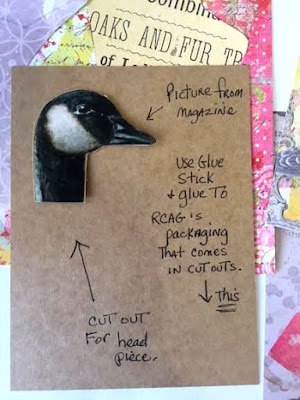 Combin
OAKS AND FUR TR
of L
Picture from
magazine
Use Glue
Stick
& glue To
RCAG'S
packaging
That comes
IN CUT OUTS.
↓ This
CUT OUT
For head
piece.